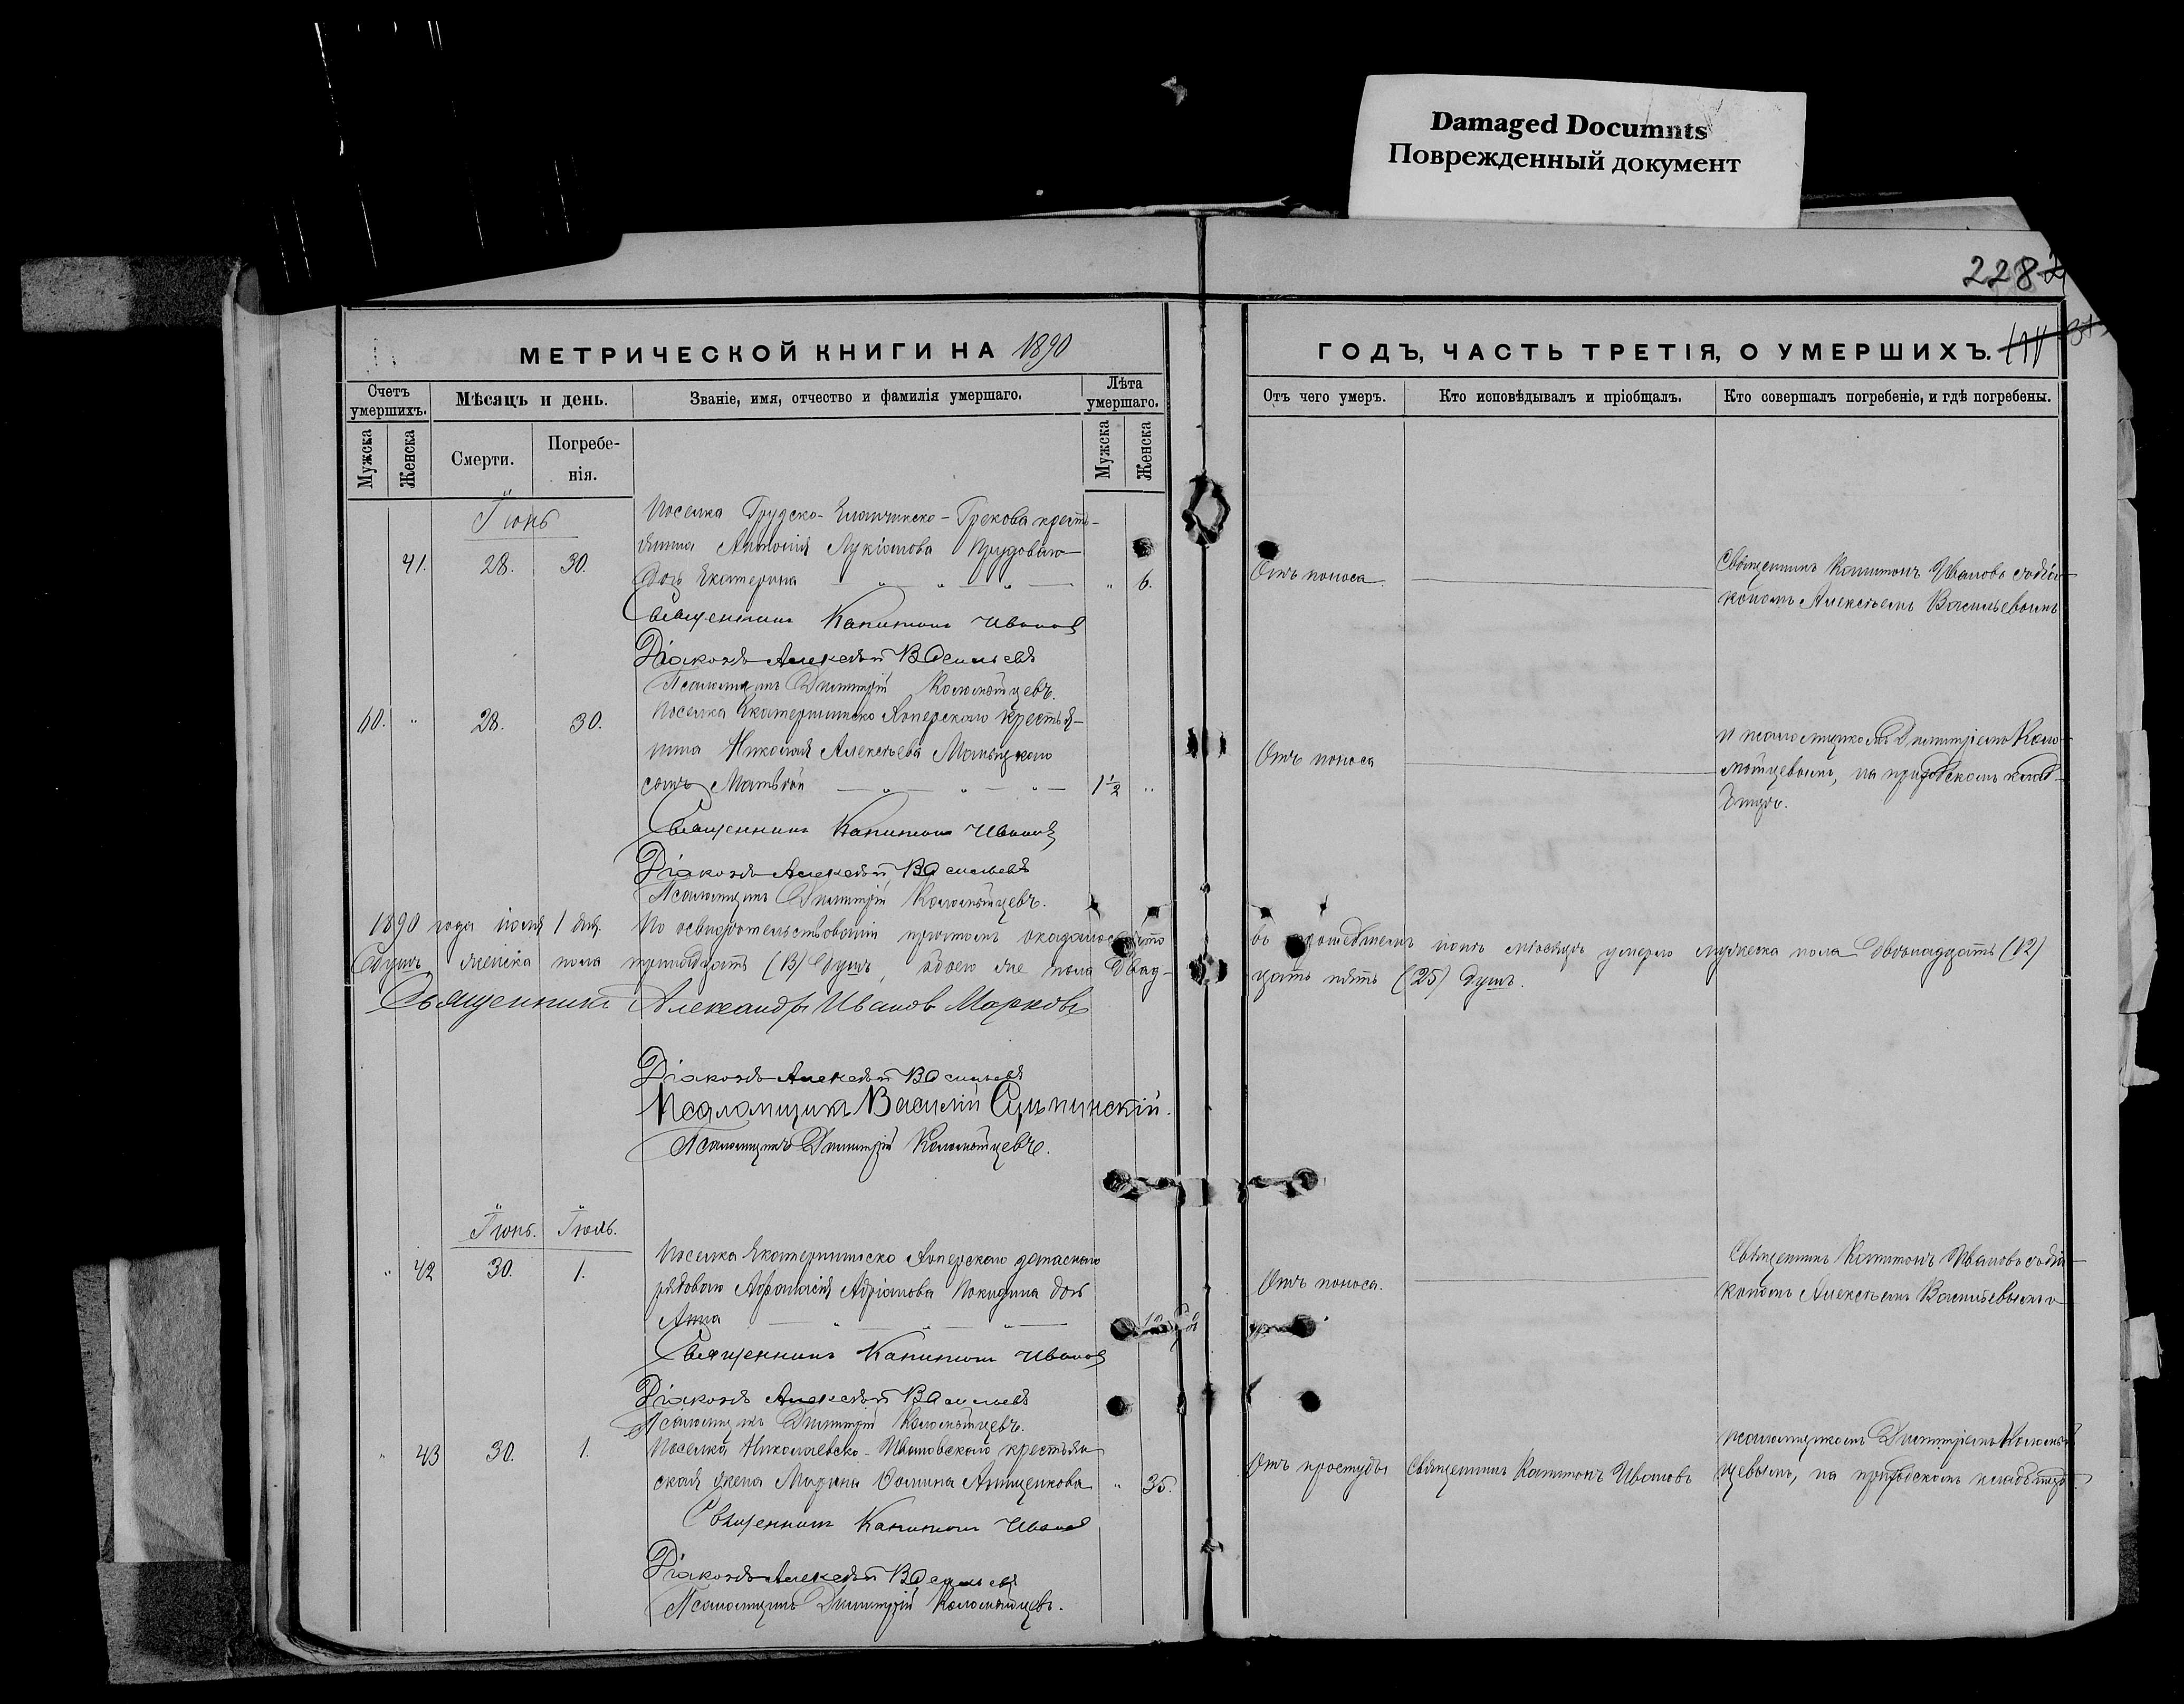 Damaged Documnts
Поврежденный документ
228
МЕТРИЧЕСКОЙ КНИГИ НА 1890
ГОДЪ, ЧАСТЬ ТРЕТІЯ, О УМЕРШИХЪ.
Счетъ умершихъ.
Мѣсяцъ и день.
Званіе, имя, отчество и фамилія умершаго.
Лѣта умершаго.
Отъ чего умеръ.
Кто исповѣдывалъ и пріобщалъ.
Кто совершалъ погребеніе, и гдѣ погребены.
Мужска
Женска
Смерти.
Погребе-
нія.
Мужска
Женска
Іюнь
Поселка Грудско-Еланчинско-Грекова кресть-
41. 28. 30.
янина Антонія Лукіанова
дочь Екатерина " " " " 6.
Отъ поноса.
Священникъ Капитонъ Ивановъ съ діа-
кономъ Алексѣемъ Васильевымъ
Священникъ Капитонъ Ивановъ
Діаконъ Алексѣй Васильевъ
Псаломщикъ Димитрій Коломійцевъ.
60. " 28. 30.
Поселка Екатерининско Хоперскаго крестья-
нина Николая Алексѣева
сынъ Матвѣй " " " 1½ "
Отъ поноса
и псаломщикомъ Димитріемъ Коло-
мійцевымъ, на приходскомъ клад-
бищѣ.
Священникъ Капитонъ Ивановъ
Діаконъ Алексѣй Васильевъ
Псаломщикъ Димитрій Коломійцевъ.
1890 года іюля 1 дня. По освидѣтельствованіи причтомъ оказалось что
въ прошедшемъ іюнѣ мѣсяцѣ умерло мужеска пола двѣнадцать (12)
душъ женска пола тринадцать (13) душъ, обоего же пола двад-
цать пять (25) душъ.
Священникъ Александръ Ивановъ Марковъ
Діаконъ Алексѣй Васильевъ
Псаломщикъ Василій
Псаломщикъ Димитрій Коломійцевъ.
Іюнь. Іюль.
" 42 30. 1.
Поселка Екатерининско Хоперскаго запаснаго
рядоваго Афанасія Адріанова дочь
Анна " " "
Отъ поноса.
Священникъ Капитонъ Ивановъ съ діа-
кономъ Алексѣемъ Васильевымъ и
Священникъ Капитонъ Ивановъ
Діаконъ Алексѣй Васильевъ
Псаломщикъ Димитрій Коломійцевъ.
" 43 30. 1.
Поселка Николаевско-Ивановскаго крестьян
ская жена Марина Фомина Анищенкова " 35.
Отъ простуды
Священникъ Капитонъ Ивановъ
псаломщикомъ Димитріемъ Коломій
цевымъ, на приходскомъ кладбищѣ.
Священникъ Капитонъ Ивановъ
Діаконъ Алексѣй Васильевъ
Псаломщикъ Димитрій Коломійцевъ.